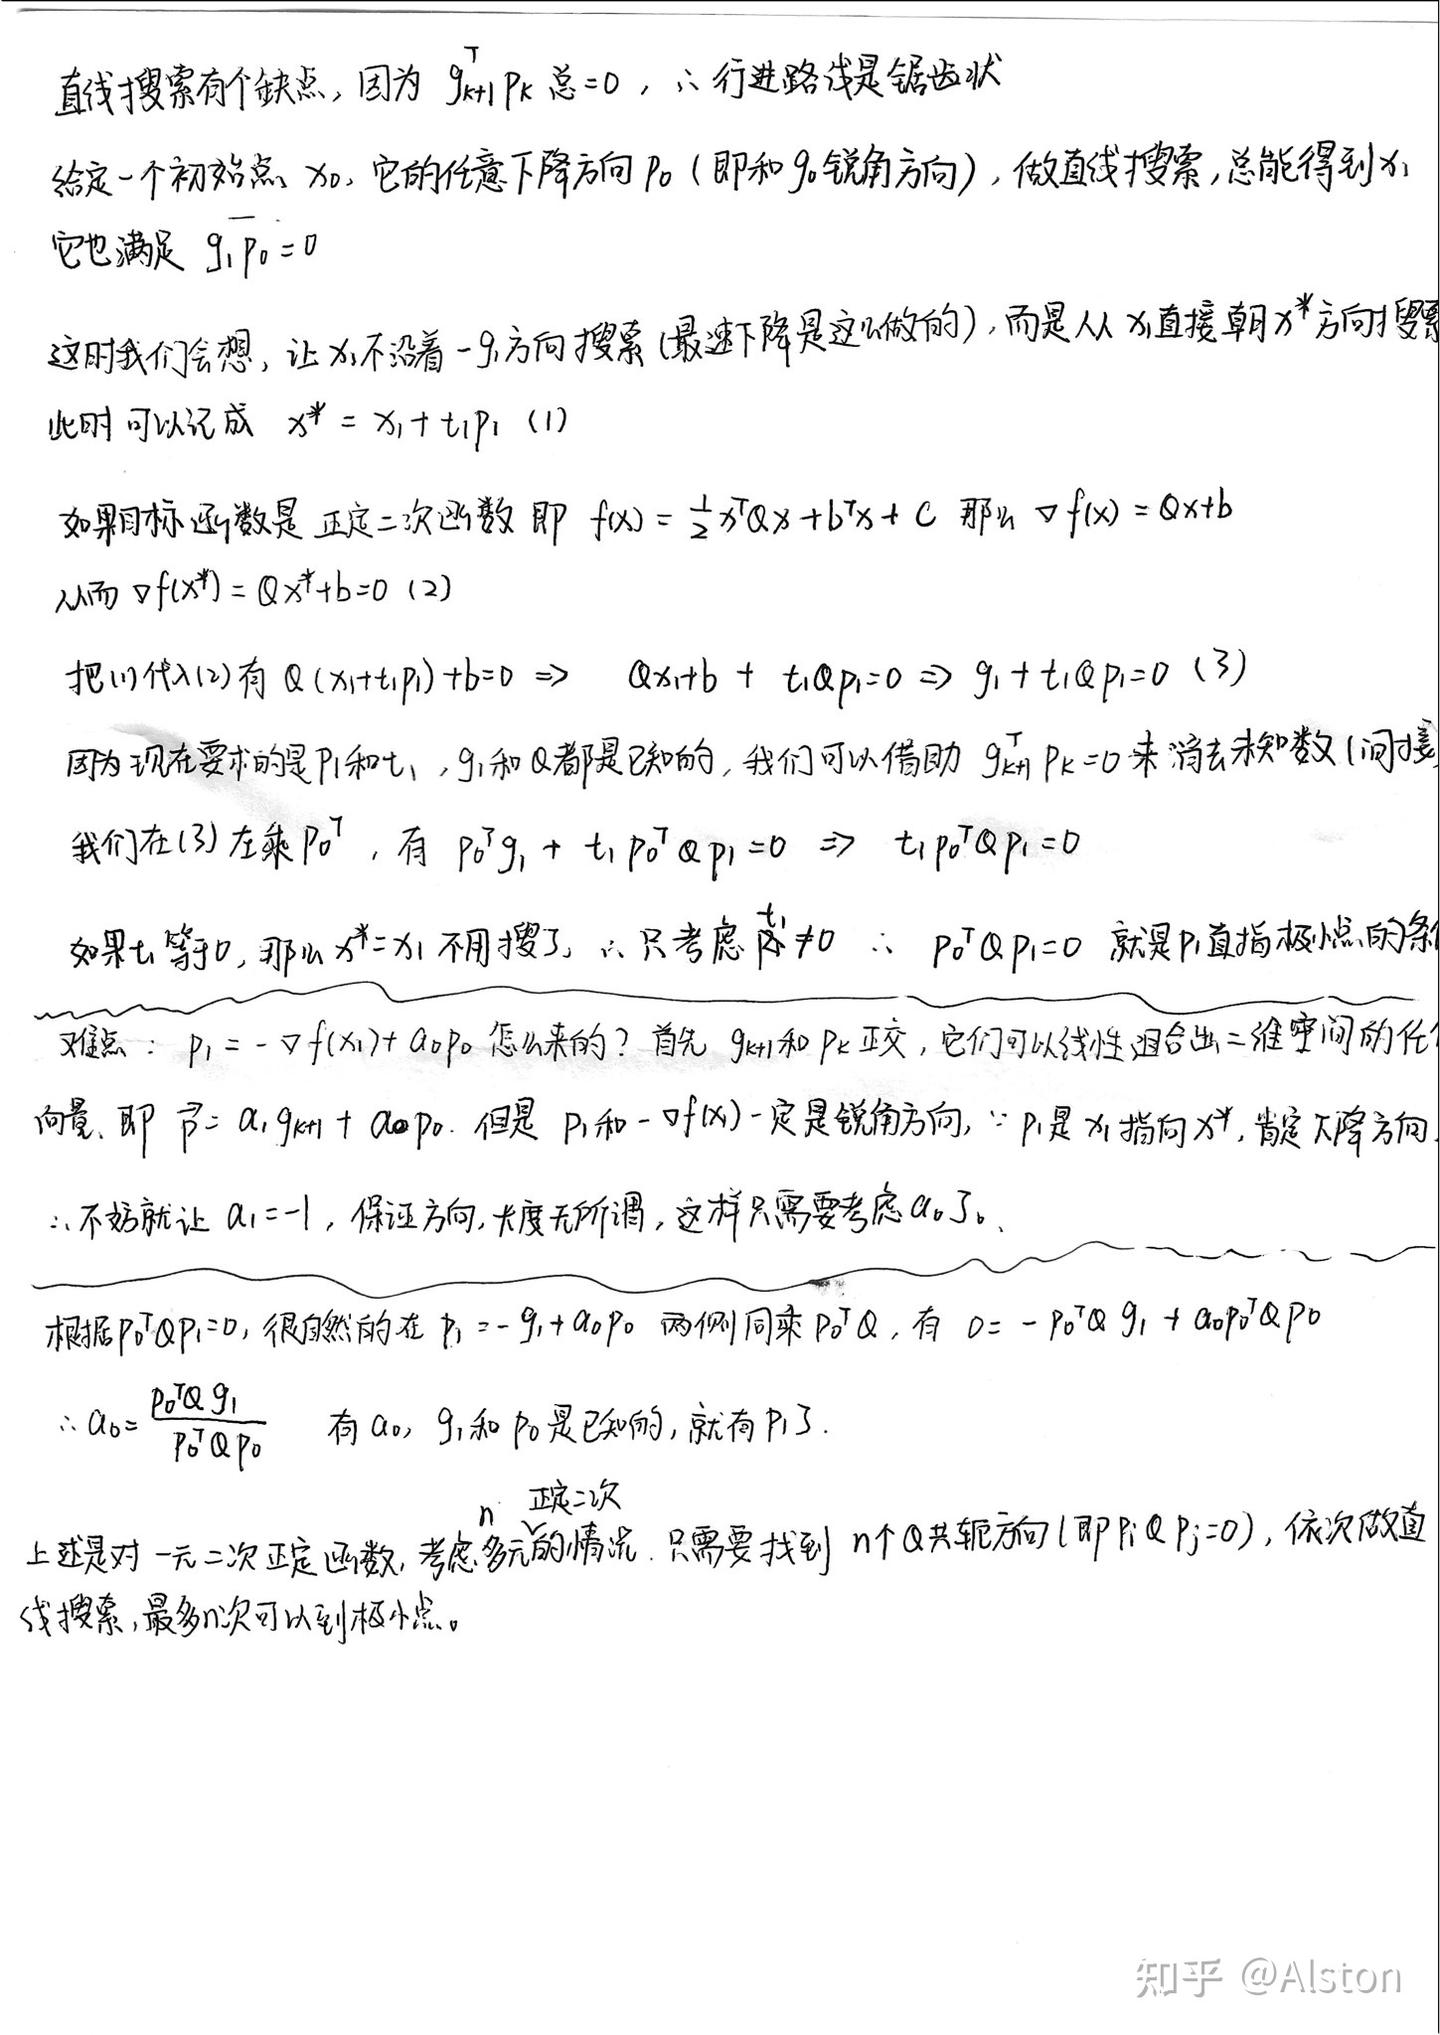 直线搜索有个缺点, 因为 g_{k+1}^T p_k 总=0, ∴行进路线是锯齿状
给定一个初始点 x₀, 它的任意下降方向 p₀ (即和 g₀ 锐角方向), 做直线搜索, 总能得到 x₁
它也满足 g₁p₀=0
这时我们会想, 让 x₁ 不沿着 -g₁ 方向搜索 (最速下降是这么做的), 而是从 x₁ 直接朝 x* 方向搜索
此时可以记成 x* = x₁+t₁p₁ (1)
如果目标函数是正定二次函数 即 f(x) = ½xᵀQx+bᵀx+C 那么 ∇f(x)=Qx+b
从而 ∇f(x*)=Qx*+b=0 (2)
把(1)代入(2)有 Q(x₁+t₁p₁)+b=0 ⇒ Qx₁+b + t₁Qp₁=0 ⇒ g₁+t₁Qp₁=0 (3)
因为现在要求的是 p₁和t₁, g₁和Q都是已知的, 我们可以借助 g_{k+1}^T p_k=0 来消去未知数(间接
我们在(3)左乘 p₀ᵀ, 有 p₀ᵀg₁ + t₁p₀ᵀQp₁=0 ⇒ t₁p₀ᵀQp₁=0
如果t₁等于0, 那么 x*=x₁ 不用搜了, ∴只考虑 t₁≠0 ∴ p₀ᵀQp₁=0 就是p₁直指极小点的条
难点: p₁=-∇f(x₁)+a₀p₀ 怎么来的? 首先 g_{k+1}和p_k正交, 它们可以线性组合出二维空间的任
向量, 即 p⃗=a₁g_{k+1}+a₀p₀. 但是 p₁和-∇f(x₁)一定是锐角方向, ∵p₁是x₁指向x*, 肯定下降方向.
∴不妨就让 a₁=-1, 保证方向, 长度无所谓, 这样只需要考虑a₀了。
根据p₀ᵀQp₁=0, 很自然的在 p₁=-g₁+a₀p₀ 两侧同乘 p₀ᵀQ, 有 0=-p₀ᵀQg₁+a₀p₀ᵀQp₀
∴a₀= p₀ᵀQg₁ / p₀ᵀQp₀ 有a₀, g₁和p₀是已知的, 就有p₁了.
n 正定二次
上述是对一元二次正定函数, 考虑多元的情况. 只需要找到 n个Q共轭方向(即 p_iQp_j=0), 依次做直
线搜索, 最多n次可以到极小点。
知乎 @Alston